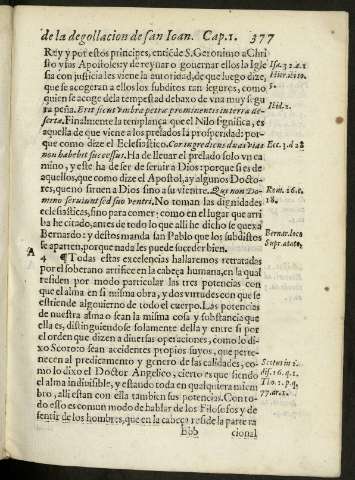 de la degollacion de san Ioan. Cap.1. 377
Rey y por estos principes, entiēde S. Geronimo a Chri
sto y sus Apostoles: y de reynar o gouernar ellos la Igle
sia con justicia les viene la autoridad, de que luego dize,
que se acogeran a ellos los subditos tan seguros, como
quien se acoge de la tempestad debaxo de vna muy segu
ra peña. Erit sicut vmbra petræ prominentis in terra de-
serta. Finalmente la templança que el Nilo significa, es
aquella de que viene a los prelados la prosperidad: por-
que como dize el Eclesiastico. Cor ingrediens duas vias
non habebit successus. Ha de lleuar el prelado solo vn ca
mino, y este ha de ser de seruir a Dios: porque si es de
aquellos, que como dize el Apostol, ay algunos Docto-
res, que no siruen a Dios sino a su vientre. Qui non Do-
mino seruiunt sed suo ventri. No toman las dignidades
eclesiasticas, sino para comer; como en el lugar que arri
ba he citado, antes de todo lo que alli he dicho se quexa
Bernardo: y destos manda san Pablo que los subditos
se aparten, porque nada les puede suceder bien.
4 ¶Todas estas excelencias hallaremos retratadas
por el soberano artifice en la cabeça humana, en la qual
residen por modo particular las tres potencias con
que el alma en si misma obra, y dos virtudes con que se
estriende alguienuto de todo el cuerpo. Las potencias
de nuestra alma o sean la misma cosa y substancia que
ella es, distinguiendose solamente della y entre si por
el orden que dizen a diuersas operaciones, como lo di-
xo Scoto: o sean accidentes propios suyos, que perte-
necen al predicamento y genero de las calidades, co-
mo lo dixo el Doctor Angelico, cierto es que siendo
el alma indiuisible, y estando toda en qualquiera miem
bro, alli estan con ella tambien sus potencias. Con to-
do esso es comun modo de hablar de los Filosofos y de
sentir de los hombres, que en la cabeça reside la parte ra
Bbb cional
Isa. 32. a. 1
Hieron. ibi.
Ibid. 2.
Ecc. 3. d 28
Rom. 16. c.
18.
Bernar. loco
supr. citato.
A
Scotus in 2.
dis. 16. q. 1.
Tho. 1. p. q.
77. ar. 1.